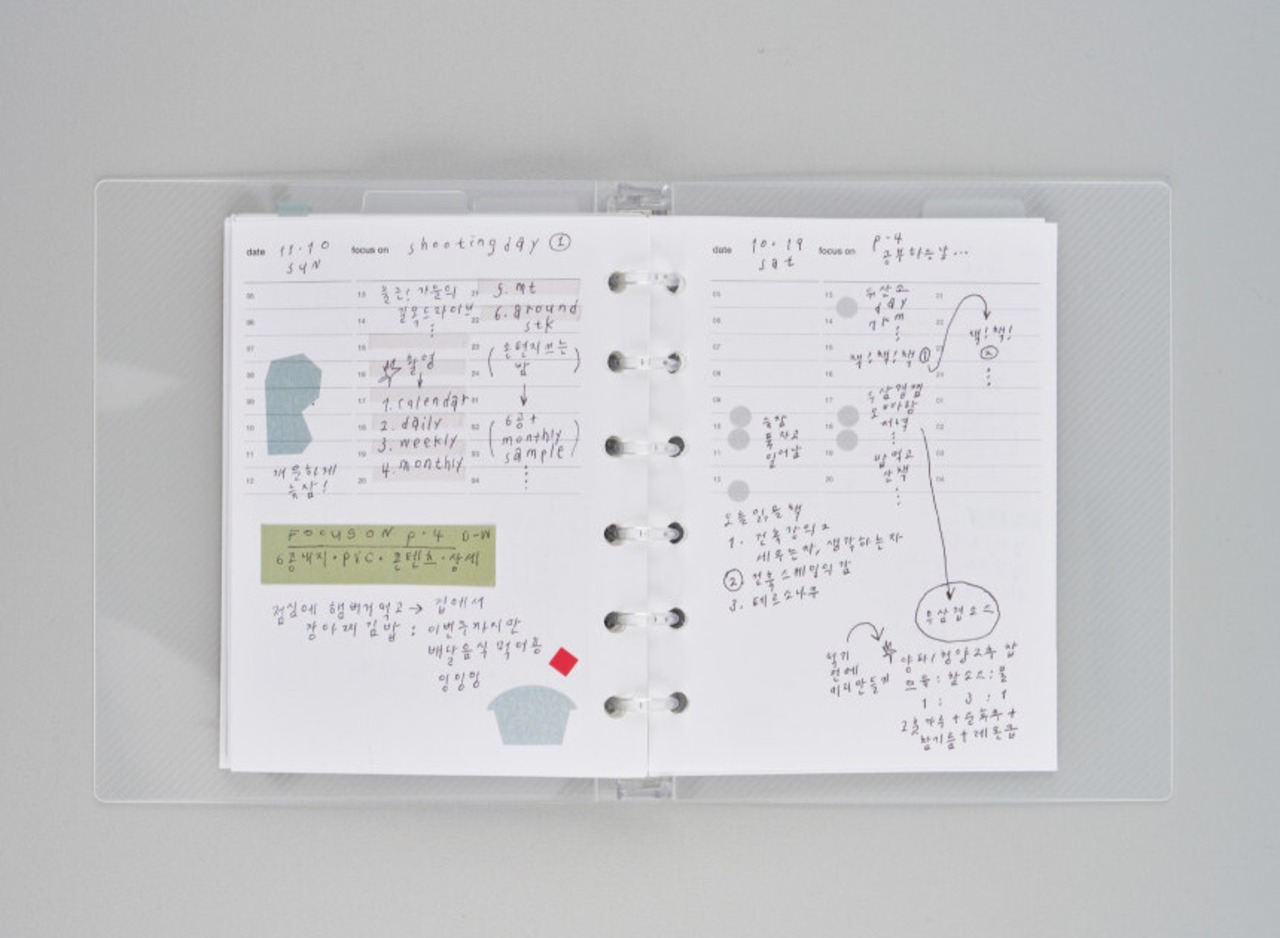 date 11.10 SUN
focus on shooting day ①
05
06
07
08
09
10
11
12
개운하게
늦잠!
13
14
15
16
17
18
19
20
출근! 가을의
드라이브
촬영
1. calendar
2. daily
3. weekly
4. monthly
21
22
23
24
01
02
03
04
5. mt
6. around
stk
밤
6공+
monthly
sample
FOCUS ON p.4 D-W
6공내지·pic·콘텐츠·상세
점심에 햄버거 먹고 → 집에서
장아찌김밥 : 이번주까지만
배달음식 먹어용
잉잉잉
date 10.19 sat
focus on p.4
공부하는날...
05
06
07
08
09
10
11
12
늦잠
푹자고
일어남
13
14
15
16
17
18
19
20
day
책!책!책 ①
우삼겹찜
저녁
밥먹고
산책
21
22
23
24
01
02
03
04
책!책!
②
오늘 읽을 책
1. 건축강의2
세우는자, 생각하는자
② 건축 스케일의 감
3.
우삼겹소스
먹기
전에
미리만들기
양파/청양고추 찹
쯔유:참소스:물
1 : 3 : 1
참기름+레몬즙